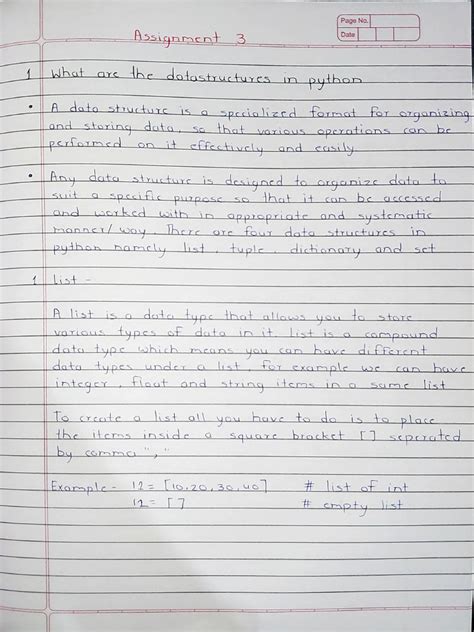 Page No.
Date
Assignment 3
1 What are the datastructures in python
• A data structure is a specialized format for organizing
and storing data, so that various operations can be
performed on it effectively and easily
• Any data structure is designed to organize data to
suit a specific purpose so that it can be accessed
and worked with in appropriate and systematic
manner/way. There are four data structures in
python namely list, tuple, dictionary and set
1 list -
A list is a data type that allows you to store
various types of data in it. List is a compound
data type which means you can have different
data types under a list, for example we can have
integer, float and string items in a same list
To create a list all you have to do is to place
the items inside a square bracket [] seperated
by comma ","
Example - l2 = [10,20,30,40] # list of int
l2 = [] # empty list